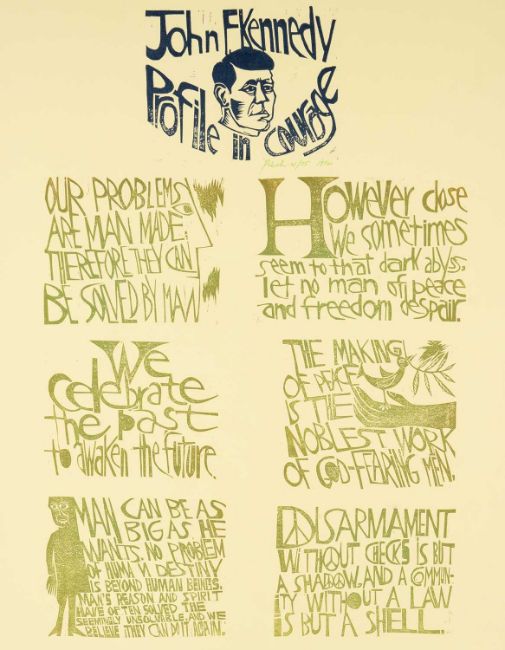 John F. Kennedy
Profile in Courage
OUR PROBLEMS
ARE MAN MADE;
THEREFORE THEY CAN
BE SOLVED BY MAN
However close
we sometimes
seem to that dark abyss,
let no man of peace
and freedom despair.
We
celebrate
the past
to awaken the future.
THE MAKING
OF PEACE
IS THE
NOBLEST WORK
OF GOD-FEARING MEN.
MAN CAN BE AS
BIG AS HE
WANTS. NO PROBLEM
OF HUMAN DESTINY
IS BEYOND HUMAN BEINGS.
MAN'S REASON AND SPIRIT
HAVE OFTEN SOLVED THE
SEEMINGLY UNSOLVABLE, AND WE
BELIEVE THEY CAN DO IT AGAIN.
DISARMAMENT
WITHOUT CHECKS IS BUT
A SHADOW, AND A COMMUN-
ITY WITHOUT A LAW
IS BUT A SHELL.